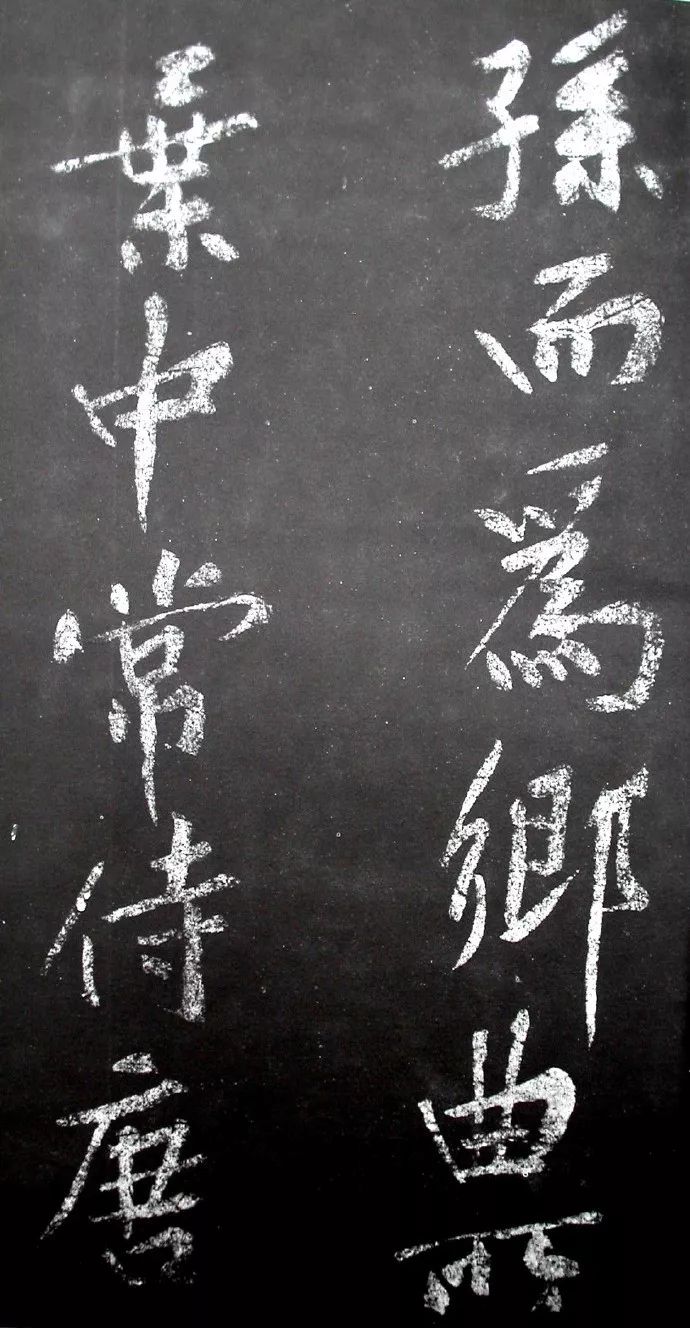 孫而爲鄉曲所
棄中常侍唐